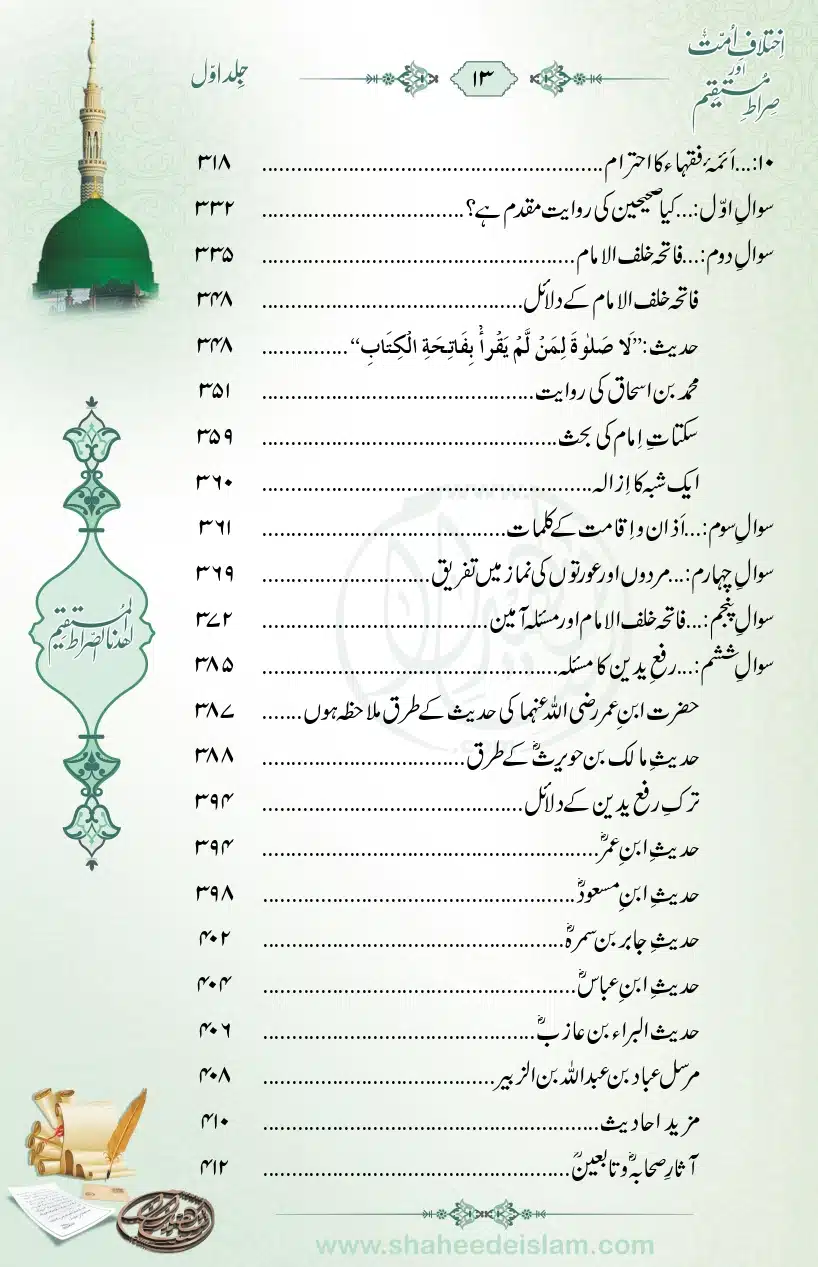 اِختلافِ اُمّت
اور
صِراطِ مُستقیم
۱۳
جِلد اوّل
۱۰:...اَئمۂ فقہاء کا احترام............................................................ ۳۱۸
سوالِ اوّل:...کیا صحیحین کی روایت مقدم ہے؟................................... ۳۳۲
سوالِ دوم:...فاتحہ خلف الامام...................................................... ۳۳۵
فاتحہ خلف الامام کے دلائل............................................. ۳۴۸
حدیث:”لَا صَلٰوةَ لِمَنْ لَّمْ یَقْرأْ بِفَاتِحَةِ الْکِتَابِ“............... ۳۴۸
محمد بن اسحاق کی روایت............................................... ۳۵۱
سکتاتِ اِمام کی بحث................................................... ۳۵۹
ایک شبہ کا اِزالہ......................................................... ۳۶۰
سوالِ سوم:...اَذان و اِقامت کے کلمات.......................................... ۳۶۱
سوالِ چہارم:...مردوں اور عورتوں کی نماز میں تفریق............................. ۳۶۹
سوالِ پنجم:...فاتحہ خلف الامام اور مسئلہ آمین....................................... ۳۷۲
سوالِ ششم:...رفعِ یدین کا مسئلہ................................................... ۳۸۵
حضرت ابنِ عمر رضی اللہ عنہما کی حدیث کے طرق ملاحظہ ہوں....... ۳۸۷
حدیثِ مالک بن حویرثؓ کے طرق................................... ۳۸۸
ترکِ رفعِ یدین کے دلائل............................................. ۳۹۴
حدیثِ ابنِ عمرؓ.......................................................... ۳۹۴
حدیثِ ابنِ مسعودؓ...................................................... ۳۹۸
حدیثِ جابر بن سمرہؓ.................................................... ۴۰۲
حدیثِ ابنِ عباسؓ...................................................... ۴۰۴
حدیث البراء بن عازبؓ............................................... ۴۰۶
مرسل عباد بن عبداللہ بن الزبیر........................................ ۴۰۸
مزید احادیث.......................................................... ۴۱۰
آثارِ صحابہؓ و تابعینؒ..................................................... ۴۱۲
اهدنا الصراط المستقیم
www.shaheedeislam.com